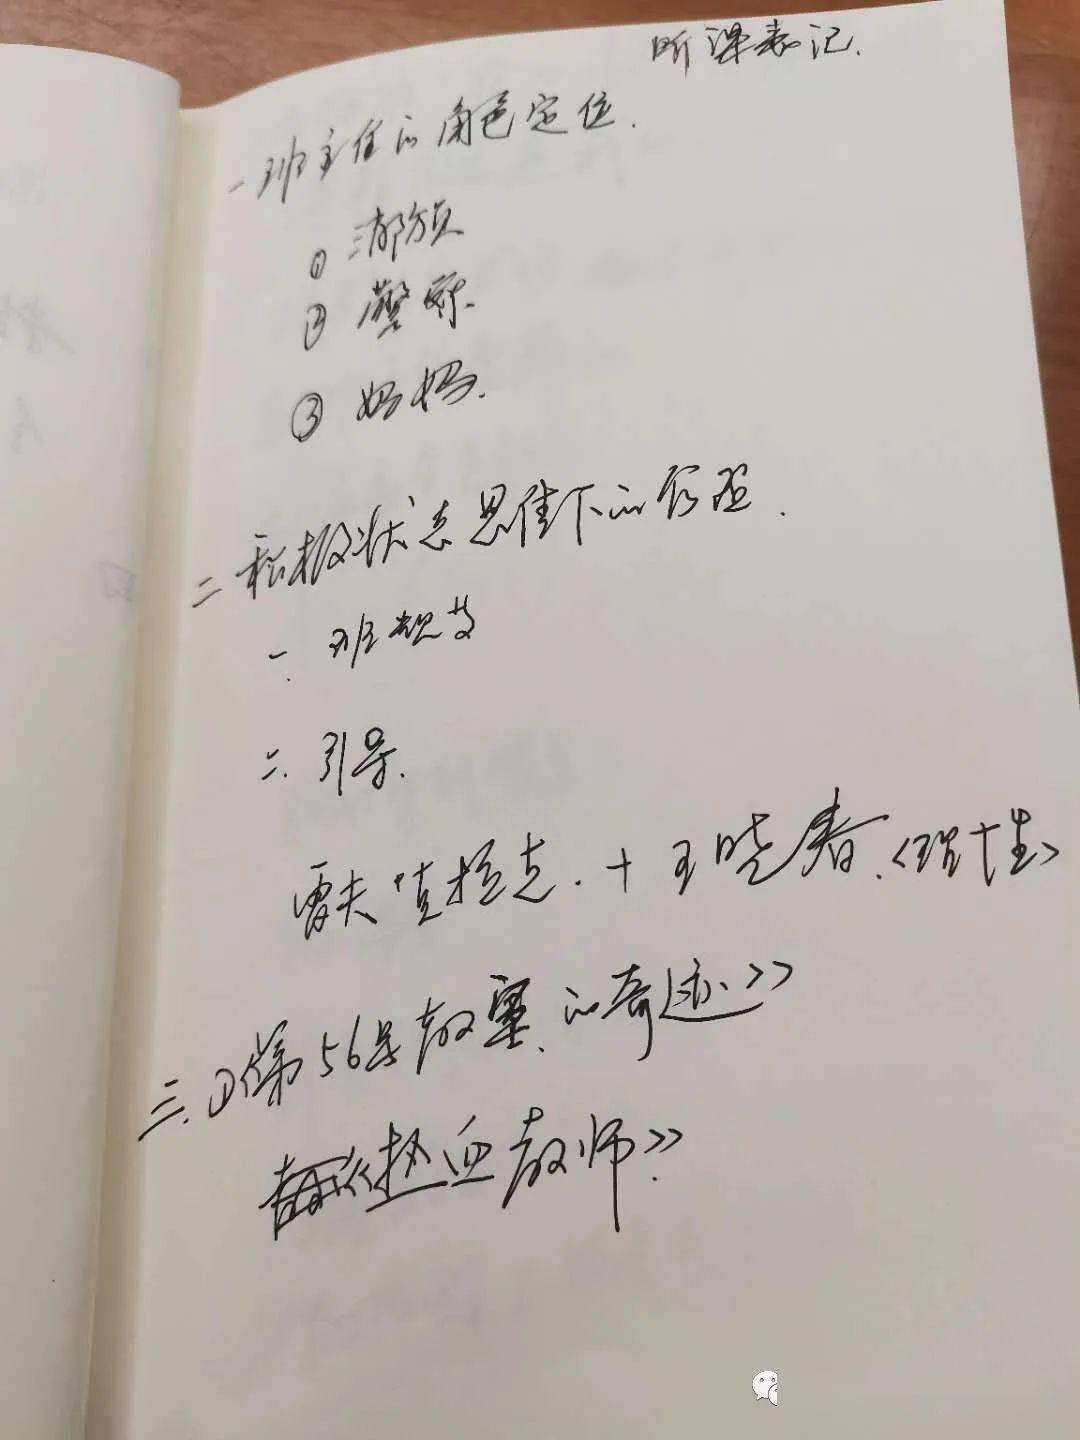 听课表记.
一 班主任的角色定位.
① 消防员
② 警察.
③ 妈妈.
二 积极状态思维下的管理.
一. 班规
二. 引导.
雷夫 克. + 王晓春.<理性>
三. ①《第56号教室的奇迹》
《热血教师》.